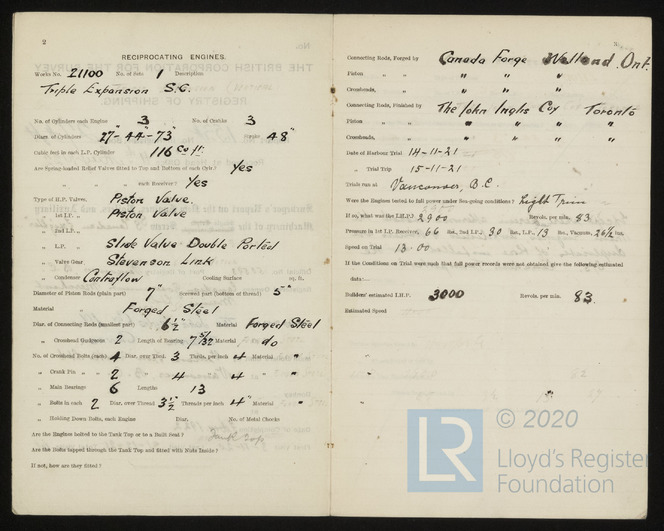 2
RECIPROCATING ENGINES.
Works No. 21100 No. of Sets 1 Description
Triple Expansion S.C.
No. of Cylinders each Engine 3 No. of Cranks 3
Diars. of Cylinders 27"- 44"- 73" Stroke 48"
Cubic feet in each L.P. Cylinder 116 Co 1"
Are Spring-loaded Relief Valves fitted to Top and Bottom of each Cylr.? Yes
" " each Receiver? Yes
Type of H.P. Valves, Piston Valve.
" 1st I.P. " Piston Valve
" 2nd I.P. "
" L.P. " Slide Valve Double Ported
" Valve Gear Stevenson Link
" Condenser Contraflow Cooling Surface sq. ft.
Diameter of Piston Rods (plain part) 7" Screwed part (bottom of thread) 5"
Material Forged Steel
Diar. of Connecting Rods (smallest part) 6 1/2" Material Forged Steel
" Crosshead Gudgeons 2 Length of Bearing 7 5/32 Material do
No. of Crosshead Bolts (each) 4 Diar. over Thrd. 3 Thrds. per inch 4 Material "
" Crank Pin " 2 " 4 " 4 " "
" Main Bearings 6 Lengths 13
" Bolts in each 2 Diar. over Thread 3 1/2" Threads per inch 4 Material "
" Holding Down Bolts, each Engine Diar. No. of Metal Chocks
Are the Engines bolted to the Tank Top or to a Built Seat? Tank Top
Are the Bolts tapped through the Tank Top and fitted with Nuts Inside?
If not, how are they fitted?
Connecting Rods, Forged by Canada Forge Welland, Ont.
Piston " " " " "
Crossheads, " " " "
Connecting Rods, Finished by The John Inglis Coy Toronto
Piston " " " " "
Crossheads, " " " " "
Date of Harbour Trial 14-11-21
" Trial Trip 15-11-21
Trials run at Vancouver, B.C.
Were the Engines tested to full power under Sea-going conditions? Light Trim
If so, what was the I.H.P.? 2900 Revols. per min. 83
Pressure in 1st I.P. Receiver, 66 lbs., 2nd I.P., 30 lbs., L.P., 13 lbs., Vacuum, 26 1/2 ins.
Speed on Trial 13.00
If the Conditions on Trial were such that full power records were not obtained give the following estimated
data:—
Builders' estimated I.H.P. 3000 Revols. per min. 83
Estimated Speed
LR
© 2020
Lloyd's Register
Foundation